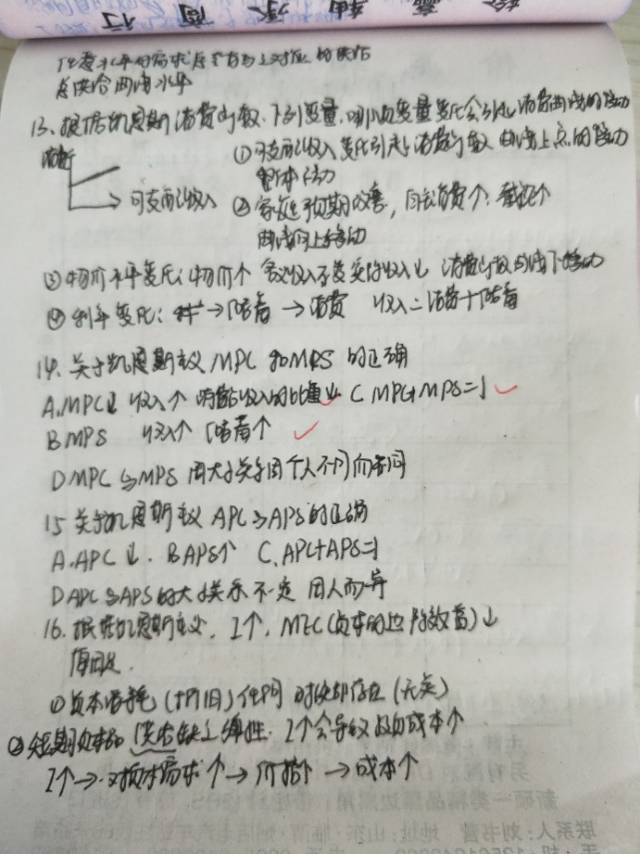 价格水平的需求
总供给曲线水平
13. 根据凯恩斯消费函数、下列变量,哪几项变量变化会引起消费曲线的移动
消费
① 可支配收入变化引起消费函数曲线上点的移动
可支配收入
整体不动
② 家庭预期改善,自发消费↑. 截距↑
曲线向上移动
③ 物价水平变化:物价↑ 名义收入不变实际收入↓ 消费函数曲线下移动
④ 利率变化: 利率→储蓄→消费 收入=消费+储蓄
14. 关于凯恩斯主义 MPC 和MPS 的正确
A. MPC↓ 收入↑ 消费占收入的比重↓ C MPC+MPS=1
B MPS 收入↑ 储蓄↑
D MPC与MPS 的大小关系因个人不同而不同
15 关于凯恩斯主义 APC与APS的正确
A. APC↓. B APS↑ C. APC+APS=1
D APC与APS的大小关系不定 因人而异
16. 根据凯恩斯主义, I↑, MEC(资本的边际效益)↓
原因是.
① 资本消耗(折旧)任何时候都存在(无关)
② 短期资本品供给缺乏弹性. I↑会导致投资成本↑
I↑→对资本需求↑→价格↑→成本↑